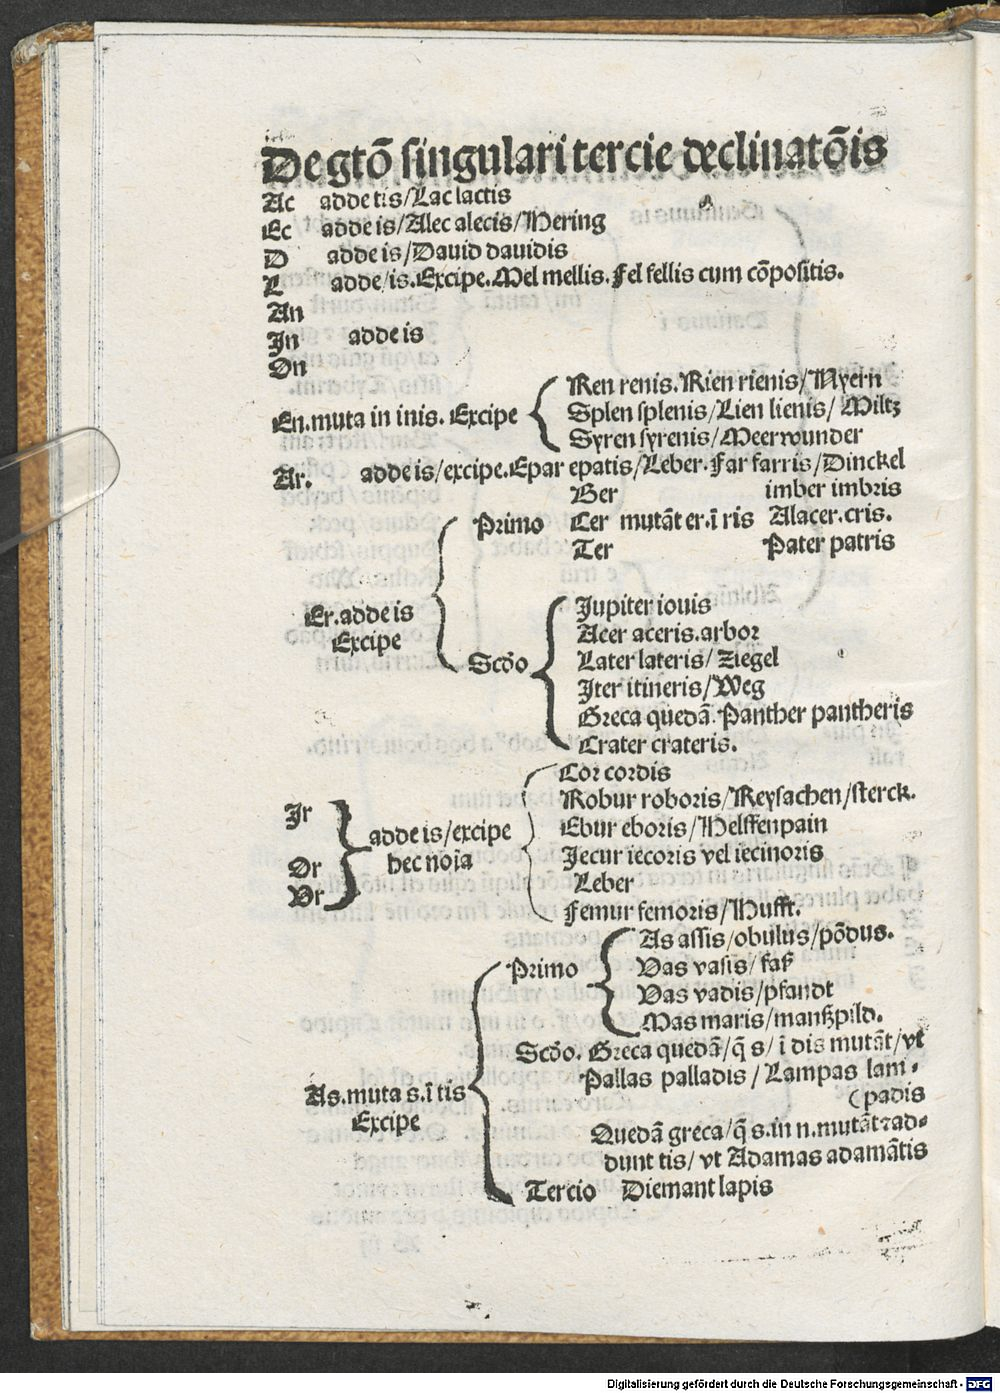 De gtõ singulari tercie declinatõis
Ac adde tis/Lac lactis
Ec adde is/Alec alecis/Hering
D adde is/Dauid dauidis
L adde/is.Excipe.Mel mellis.Fel fellis cum cõpositis.
An
In adde is
On
Ren renis.Rien rienis/Nyern
En.muta in inis. Excipe Splen splenis/Lien lienis/ Miltz
Syren syrenis/Meerwunder
Ar. adde is/excipe.Epar epatis/Leber.Far farris/Dinckel
Ber imber imbris
Primo Cer mutãt er.ĩ ris Alacer.cris.
Ter Pater patris
Er.adde is
Excipe
Jupiter iouis
Acer aceris.arbor
Scďo Later lateris/ Ziegel
Iter itineris/Weg
Greca quedã.Panther pantheris
Crater crateris.
Cor cordis
Ir Robur roboris/Reysachen/sterck.
adde is/excipe Ebur eboris/Helffenpain
Or hec noĩa Jecur iecoris vel iecinoris
Vr Leber
Femur femoris/Hufft.
As assis/obulus/põdus.
Primo Vas vasis/faß
Vas vadis/pfandt
Mas maris/manßpild.
Scďo. Greca quedã/q̃ s/ ĩ dis mutãt/vt
Pallas palladis/Lampas lam-
As.muta s.ĩ tis (padis
Excipe
Quedã greca/q̃ s.in n.mutãt⁊ad-
dunt tis/vt Adamas adamãtis
Tercio Diemant lapis
Digitalisierung gefördert durch die Deutsche Forschungsgemeinschaft - DFG